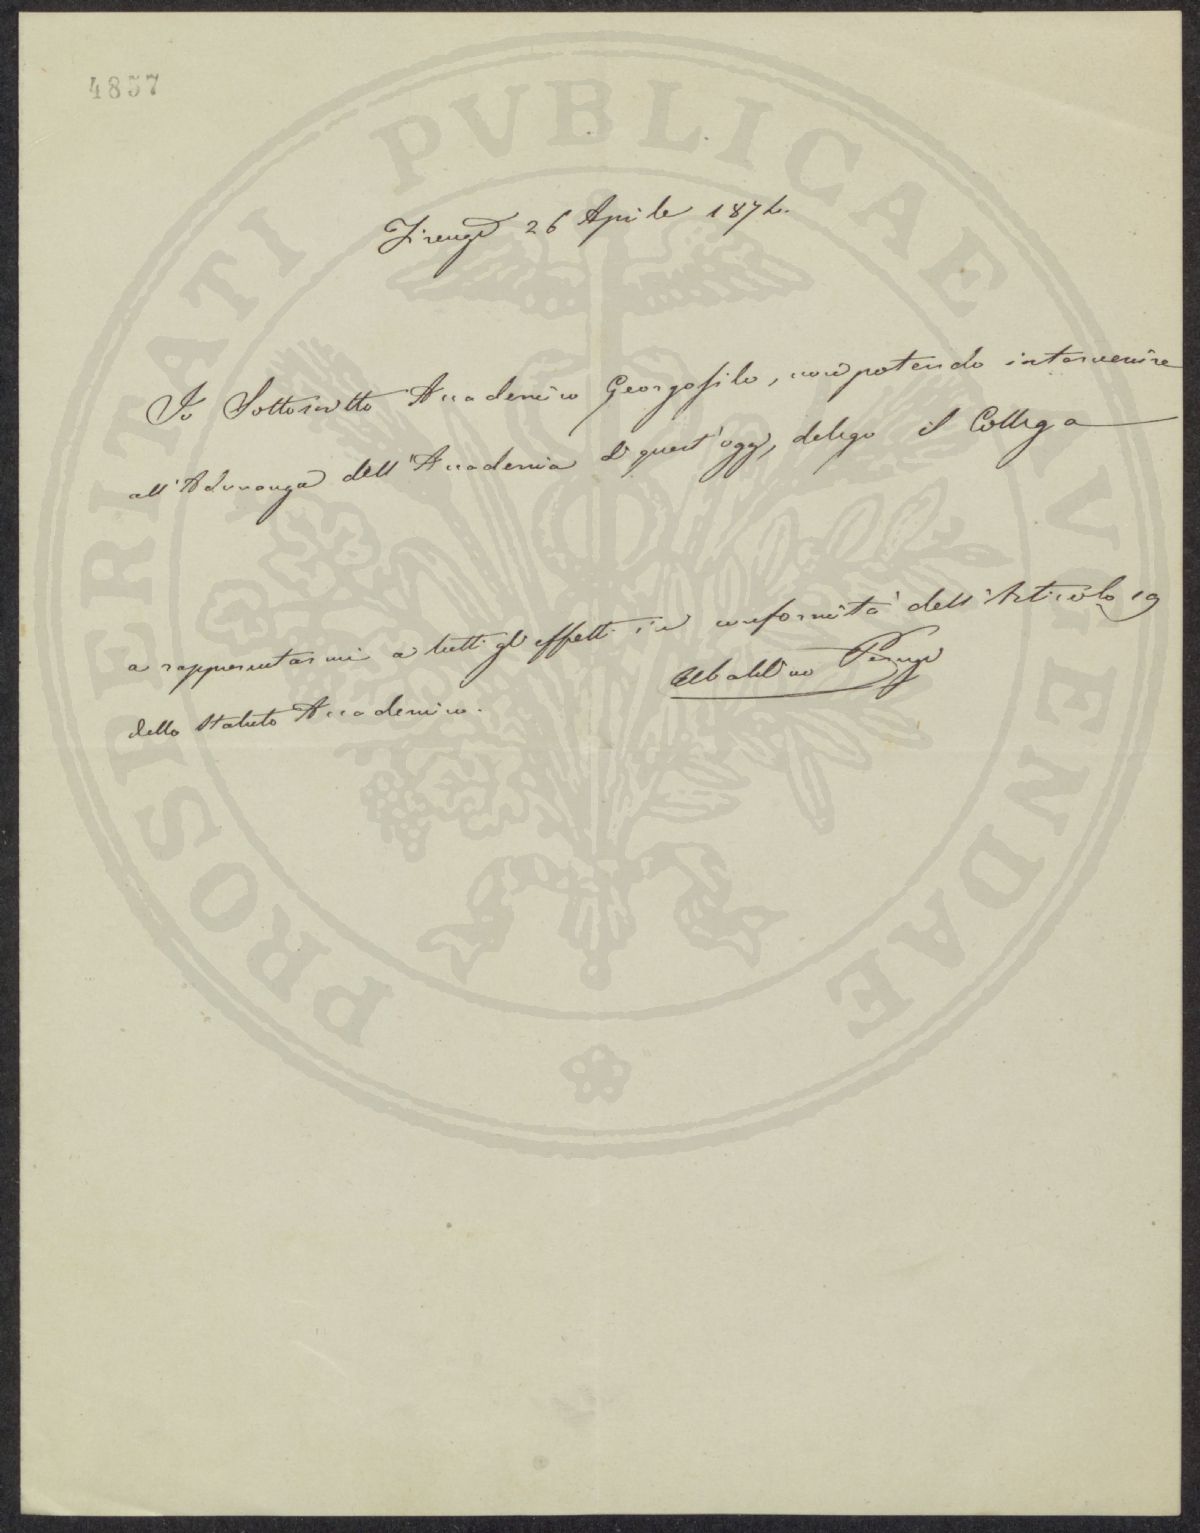 4857
PROSPERITATI PVBLICAE AVGENDAE
Firenze 26 Aprile 1874.
Io Sottoscritto Accademico Georgofilo, non potendo intervenire
all'Adunanza dell'Accademia di quest'oggi, delego il Collega
a rappresentarmi a tutti gli effetti ed in conformità dell'Articolo 19
dello Statuto Accademico.
Ubaldino Peruzzi